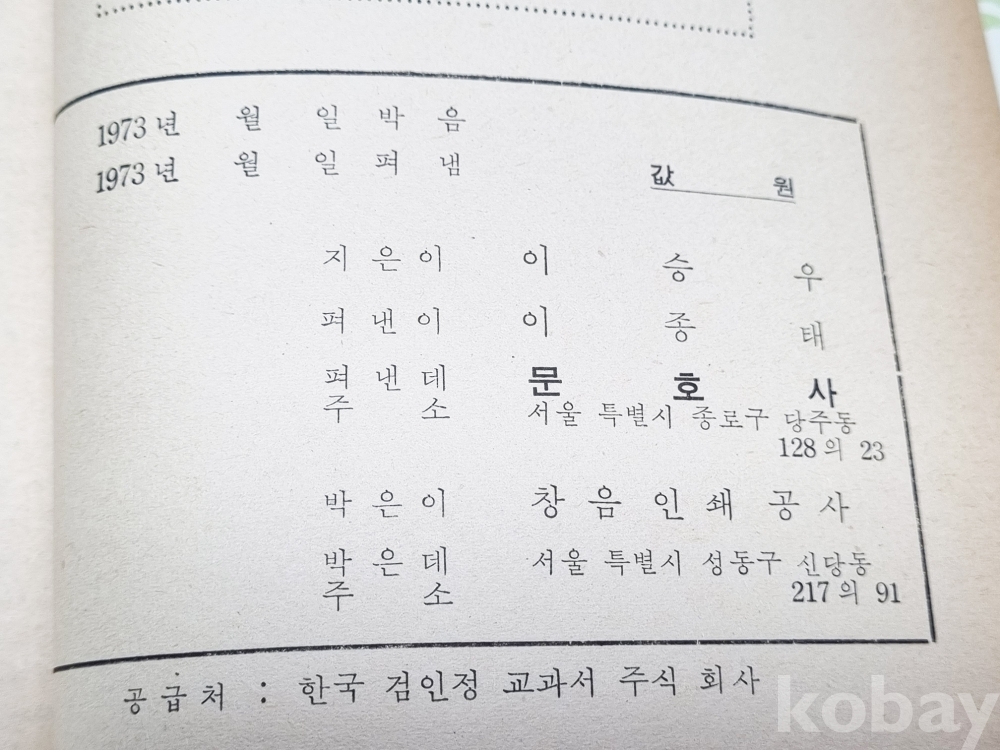 1973년 월 일 박 음
1973년 월 일 펴 냄
값 원
지 은 이 이 승 우
펴 낸 이 이 종 태
펴 낸 데 문 호 사
주 소 서울 특별시 종로구 당주동
128의 23
박 은 이 창 음 인 쇄 공 사
박 은 데 서울 특별시 성동구 신당동
주 소 217의 91
공급처 : 한국 검인정 교과서 주식 회사
kobay